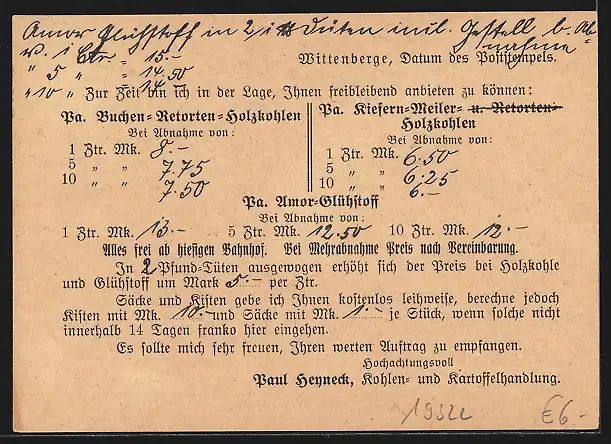 Amor Glühstoff in 2 ℔ Düten inkl. Gestell b. Ab-
v. 1 Ctr = 15.- nahme
" 5 " = 14.50
" 10 " = 14.-
Wittenberge, Datum des Poststempels.
Zur Zeit bin ich in der Lage, Ihnen freibleibend anbieten zu können:
Pa. Buchen-Retorten-Holzkohlen
Bei Abnahme von:
1 Ztr. Mk. 8.-
5 " " 7.75
10 " " 7.50
Pa. Kiefern-Meiler- u. Retorten-
Holzkohlen
Bei Abnahme von:
1 Ztr. Mk. 6.50
5 " " 6.25
10 " " 6.-
Pa. Amor-Glühstoff
Bei Abnahme von:
1 Ztr. Mk. 13.- 5 Ztr. Mk. 12.50 10 Ztr. Mk. 12.-
Alles frei ab hiesigen Bahnhof. Bei Mehrabnahme Preis nach Vereinbarung.
In 2 Pfund-Tüten ausgewogen erhöht sich der Preis bei Holzkohle
und Glühstoff um Mark 5.- per Ztr.
Säcke und Kisten gebe ich Ihnen kostenlos leihweise, berechne jedoch
Kisten mit Mk. 10.- und Säcke mit Mk. 1.- je Stück, wenn solche nicht
innerhalb 14 Tagen franko hier eingehen.
Es sollte mich sehr freuen, Ihren werten Auftrag zu empfangen.
Hochachtungsvoll
Paul Heyneck, Kohlen- und Kartoffelhandlung.
€6.-